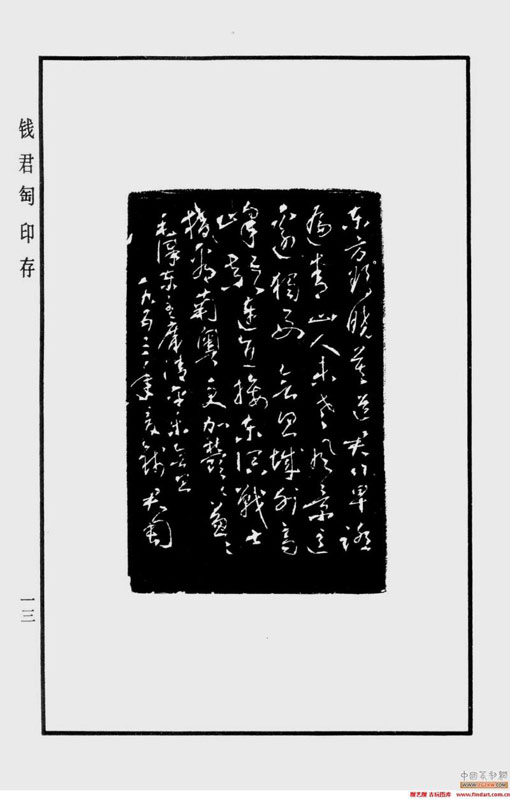 钱君匋印存
东方欲晓莫道君行早踏
遍青山人未老风景这
边独好 会昌城外高
峰颠连直接东溟战士
指看南粤更加郁郁葱葱
毛泽东主席清平乐会昌
年 钱君匋
一三
中国篆刻网
古玩图库 www.findart.com.cn